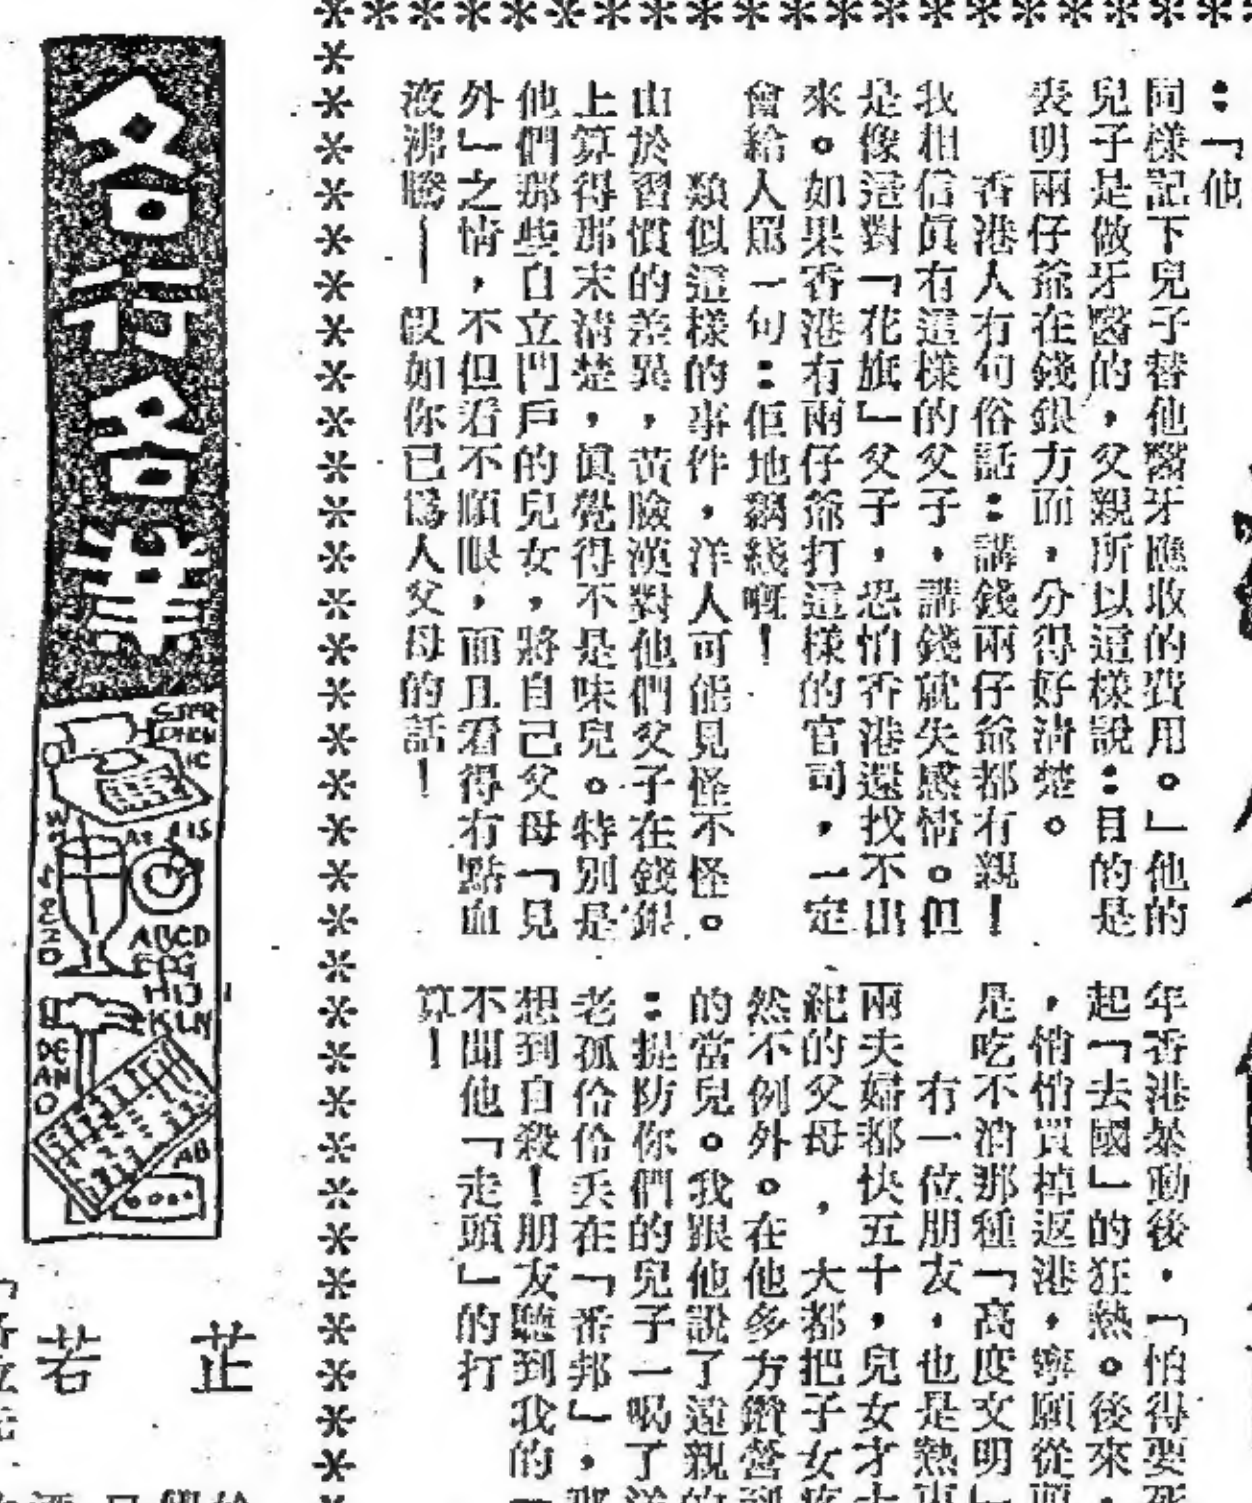 ：「他
同樣記下兒子替他醫牙應收的費用。」他的
兒子是做牙醫的，父親所以這樣說：目的是
表明兩仔爺在錢銀方面，分得好清楚。
香港人有句俗話：講錢兩仔爺都冇親！
我相信眞有這樣的父子，講錢就失感情。但
是像這對「花旗」父子，恐怕香港還找不出
來。如果香港有兩仔爺打這樣的官司，一定
會給人罵一句：佢地黐綫嘅！
類似這樣的事件，洋人可能見怪不怪。
由於習慣的差異，黃臉漢對他們父子在錢銀
上算得那末清楚，眞覺得不是味兒。特別是
他們那些自立門戶的兒女，將自己父母「見
外」之情，不但看不順眼，而且看得有點血
液沸騰—假如你已爲人父母的話！
年香港暴動後，「怕得要死
起「去國」的狂熱。後來，
，悄悄買棹返港，寧願從頭
是吃不消那種「高度文明」
有一位朋友，也是熱衷
兩夫婦都快五十，兒女才十
紀的父母，大都把子女疼
然不例外。在他多方鑽營到
的當兒。我跟他說了這親的
：提防你們的兒子一喝了洋
老孤伶伶丢在「番邦」，那
想到自殺！朋友聽到我的「
不聞他「走頭」的打
算！
各行各業
STER
PHEN
IC
ABCD
EFG
HIJ
KLN
芷 若